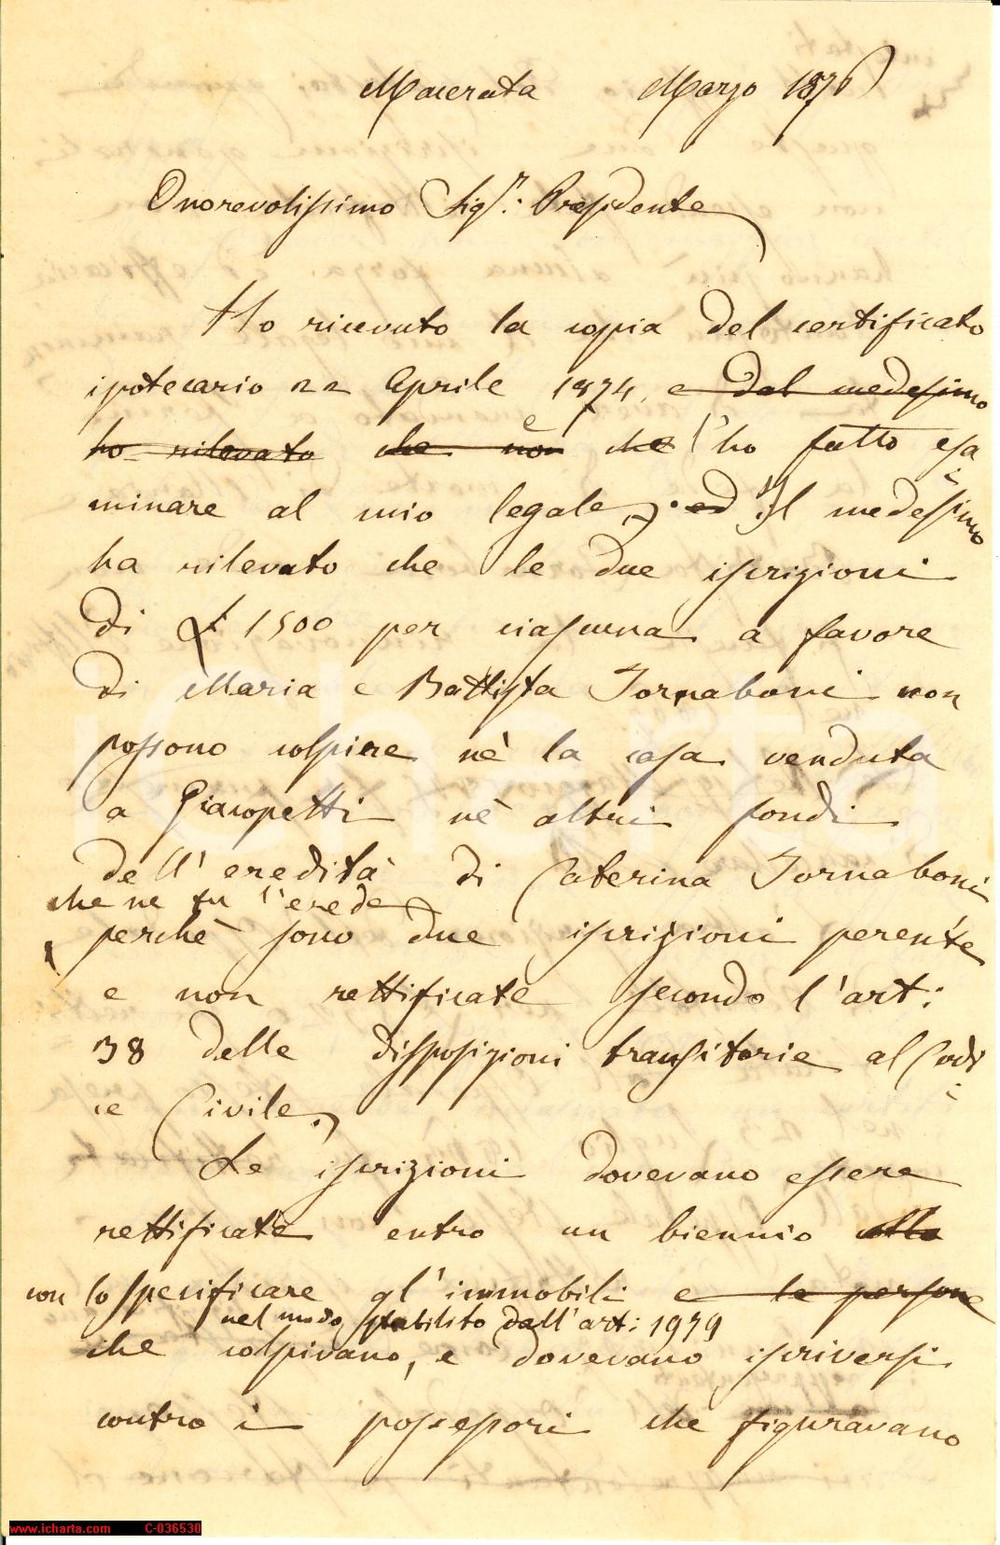 Macerata Marzo 1876
Onorevolissimo Sigr: Presidente
Ho ricevuto la copia del certificato
ipotecario 22 Aprile 1874, e dal medesimo
ho rilevato che non che l'ho fatto esa
minare al mio legale, ed il medesimo
ha rilevato che le due iscrizioni
di £ 1500 per ciascuna a favore
di Maria e Battista Tornaboni non
possono colpire nè la casa venduta
a Giacopetti nè altri fondi
dell'eredità di Caterina Tornaboni
che ne fu l'erede
perchè sono due iscrizioni perente
e non rettificate secondo l'art:
38 delle disposizioni transitorie al Codi
ce Civile.
Le iscrizioni dovevano essere
rettificate entro un biennio
con lo specificare gl'immobili e le persone
nel modo stabilito dall'art: 1979
che colpivano, e dovevano iscriversi
contro i possessori che figuravano
www.icharta.com C-036530